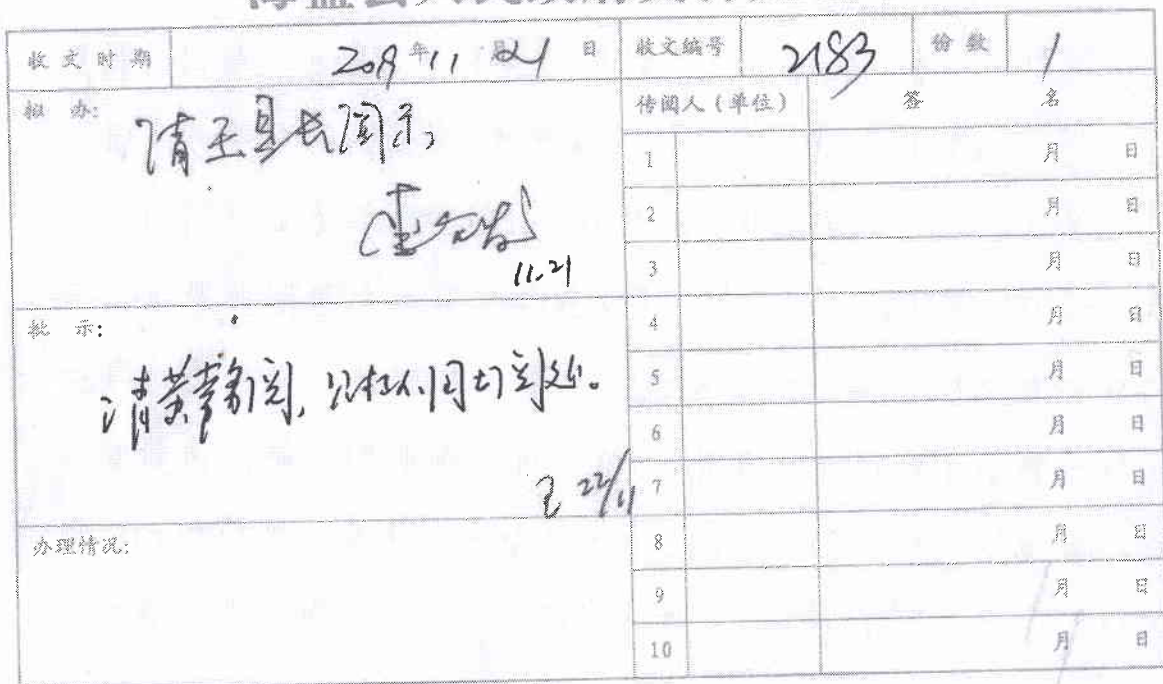 收文时期 2019年11月21日 收文编号 2183 份数 1
拟 办: 传阅人(单位) 签 名
请王县长阅示,
11.21
批 示:
请
王 22/11
办理情况:
1 月 日
2 月 日
3 月 日
4 月 日
5 月 日
6 月 日
7 月 日
8 月 日
9 月 日
10 月 日